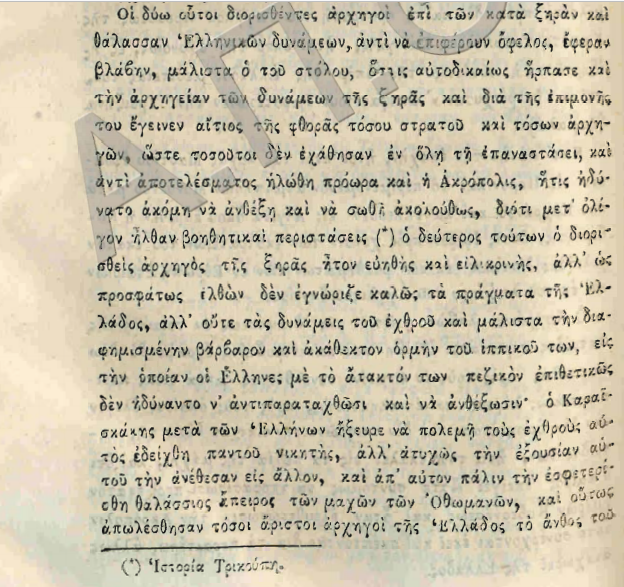 Οἱ δύω οὗτοι διορισθέντες ἀρχηγοὶ ἐπὶ τῶν κατὰ ξηρὰν καὶ
θάλασσαν Ἑλληνικῶν δυνάμεων, ἀντὶ νὰ ἐπιφέρουν ὄφελος, ἔφεραν
βλάβην, μάλιστα ὁ τοῦ στόλου, ὅστις αὐτοδικαίως ἥρπασε καὶ
τὴν ἀρχηγείαν τῶν δυνάμεων τῆς ξηρᾶς καὶ διὰ τῆς ἐπιμονῆς
του ἔγεινεν αἴτιος τῆς φθορᾶς τόσου στρατοῦ καὶ τόσων ἀρχη-
γῶν, ὥστε τοσοῦτοι δὲν ἐχάθησαν ἐν ὅλῃ τῇ ἐπαναστάσει, καὶ
ἀντὶ ἀποτελέσματος ἡλώθη πρόωρα καὶ ἡ Ἀκρόπολις, ἥτις ἠδύ-
νατο ἀκόμη νὰ ἀνθέξῃ καὶ νὰ σωθῇ ἀκολούθως, διότι μετ' ὀλί-
γον ἦλθαν βοηθητικαὶ περιστάσεις (*) ὁ δεύτερος τούτων ὁ διορι-
σθεὶς ἀρχηγὸς τῆς ξηρᾶς ἦτον εὐήθης καὶ εἰλικρινὴς, ἀλλ' ὡς
προσφάτως ἐλθὼν δὲν ἐγνώριζε καλῶς τὰ πράγματα τῆς Ἑλ-
λάδος, ἀλλ' οὔτε τὰς δυνάμεις τοῦ ἐχθροῦ καὶ μάλιστα τὴν δια-
φημισμένην βάρβαρον καὶ ἀκάθεκτον ὁρμὴν τοῦ ἱππικοῦ των, εἰς
τὴν ὁποίαν οἱ Ἕλληνες μὲ τὸ ἄτακτόν των πεζικὸν ἐπιθετικῶς
δὲν ἠδύναντο ν' ἀντιπαραταχθῶσι καὶ νὰ ἀνθέξωσιν· ὁ Καραϊ-
σκάκης μετὰ τῶν Ἑλλήνων ἤξευρε νὰ πολεμῇ τοὺς ἐχθροὺς αὐ-
τὸς ἐδείχθη παντοῦ νικητὴς, ἀλλ' ἀτυχῶς τὴν ἐξουσίαν αὐ-
τοῦ τὴν ἀνέθεσαν εἰς ἄλλον, καὶ ἀπ' αὐτὸν πάλιν τὴν ἐσφετερί-
σθη θαλάσσιος ἄπειρος τῶν μαχῶν τῶν Ὀθωμανῶν, καὶ οὕτως
ἀπωλέσθησαν τόσοι ἄριστοι ἀρχηγοὶ τῆς Ἑλλάδος τὸ ἄνθος τοῦ
(*) Ἱστορία Τρικούπη.